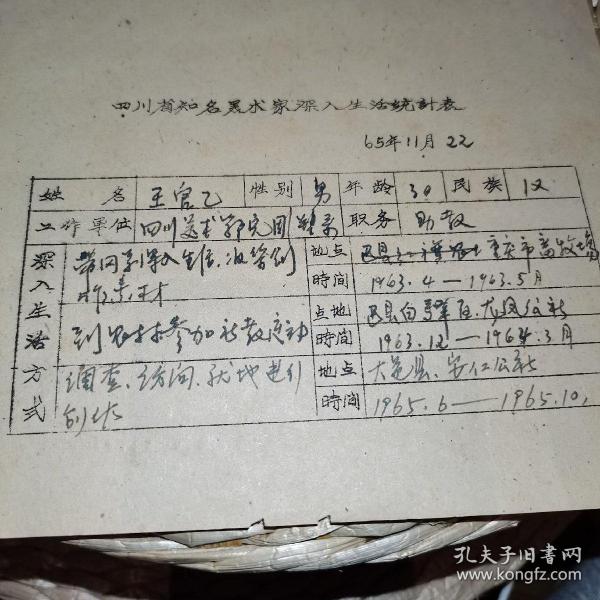 四川省知名美术家深入生活統計表
65年11月22
姓名 王官乙 性别 男 年龄 30 民族 汉
工作單位 四川美术 职务 助教
深入生活方式
带同学深入生活、收集创作素材 地点 重庆市畜牧場
時間 1963.4—1963.5月
到农村参加社教运动 点地 巴县白 区、龙凤公社
時間 1963.12—1964.3月
调查、访问、就地进行创作 地点 大邑县、安仁公社
時間 1965.6—1965.10,
孔夫子旧書网
www.kongfz.com